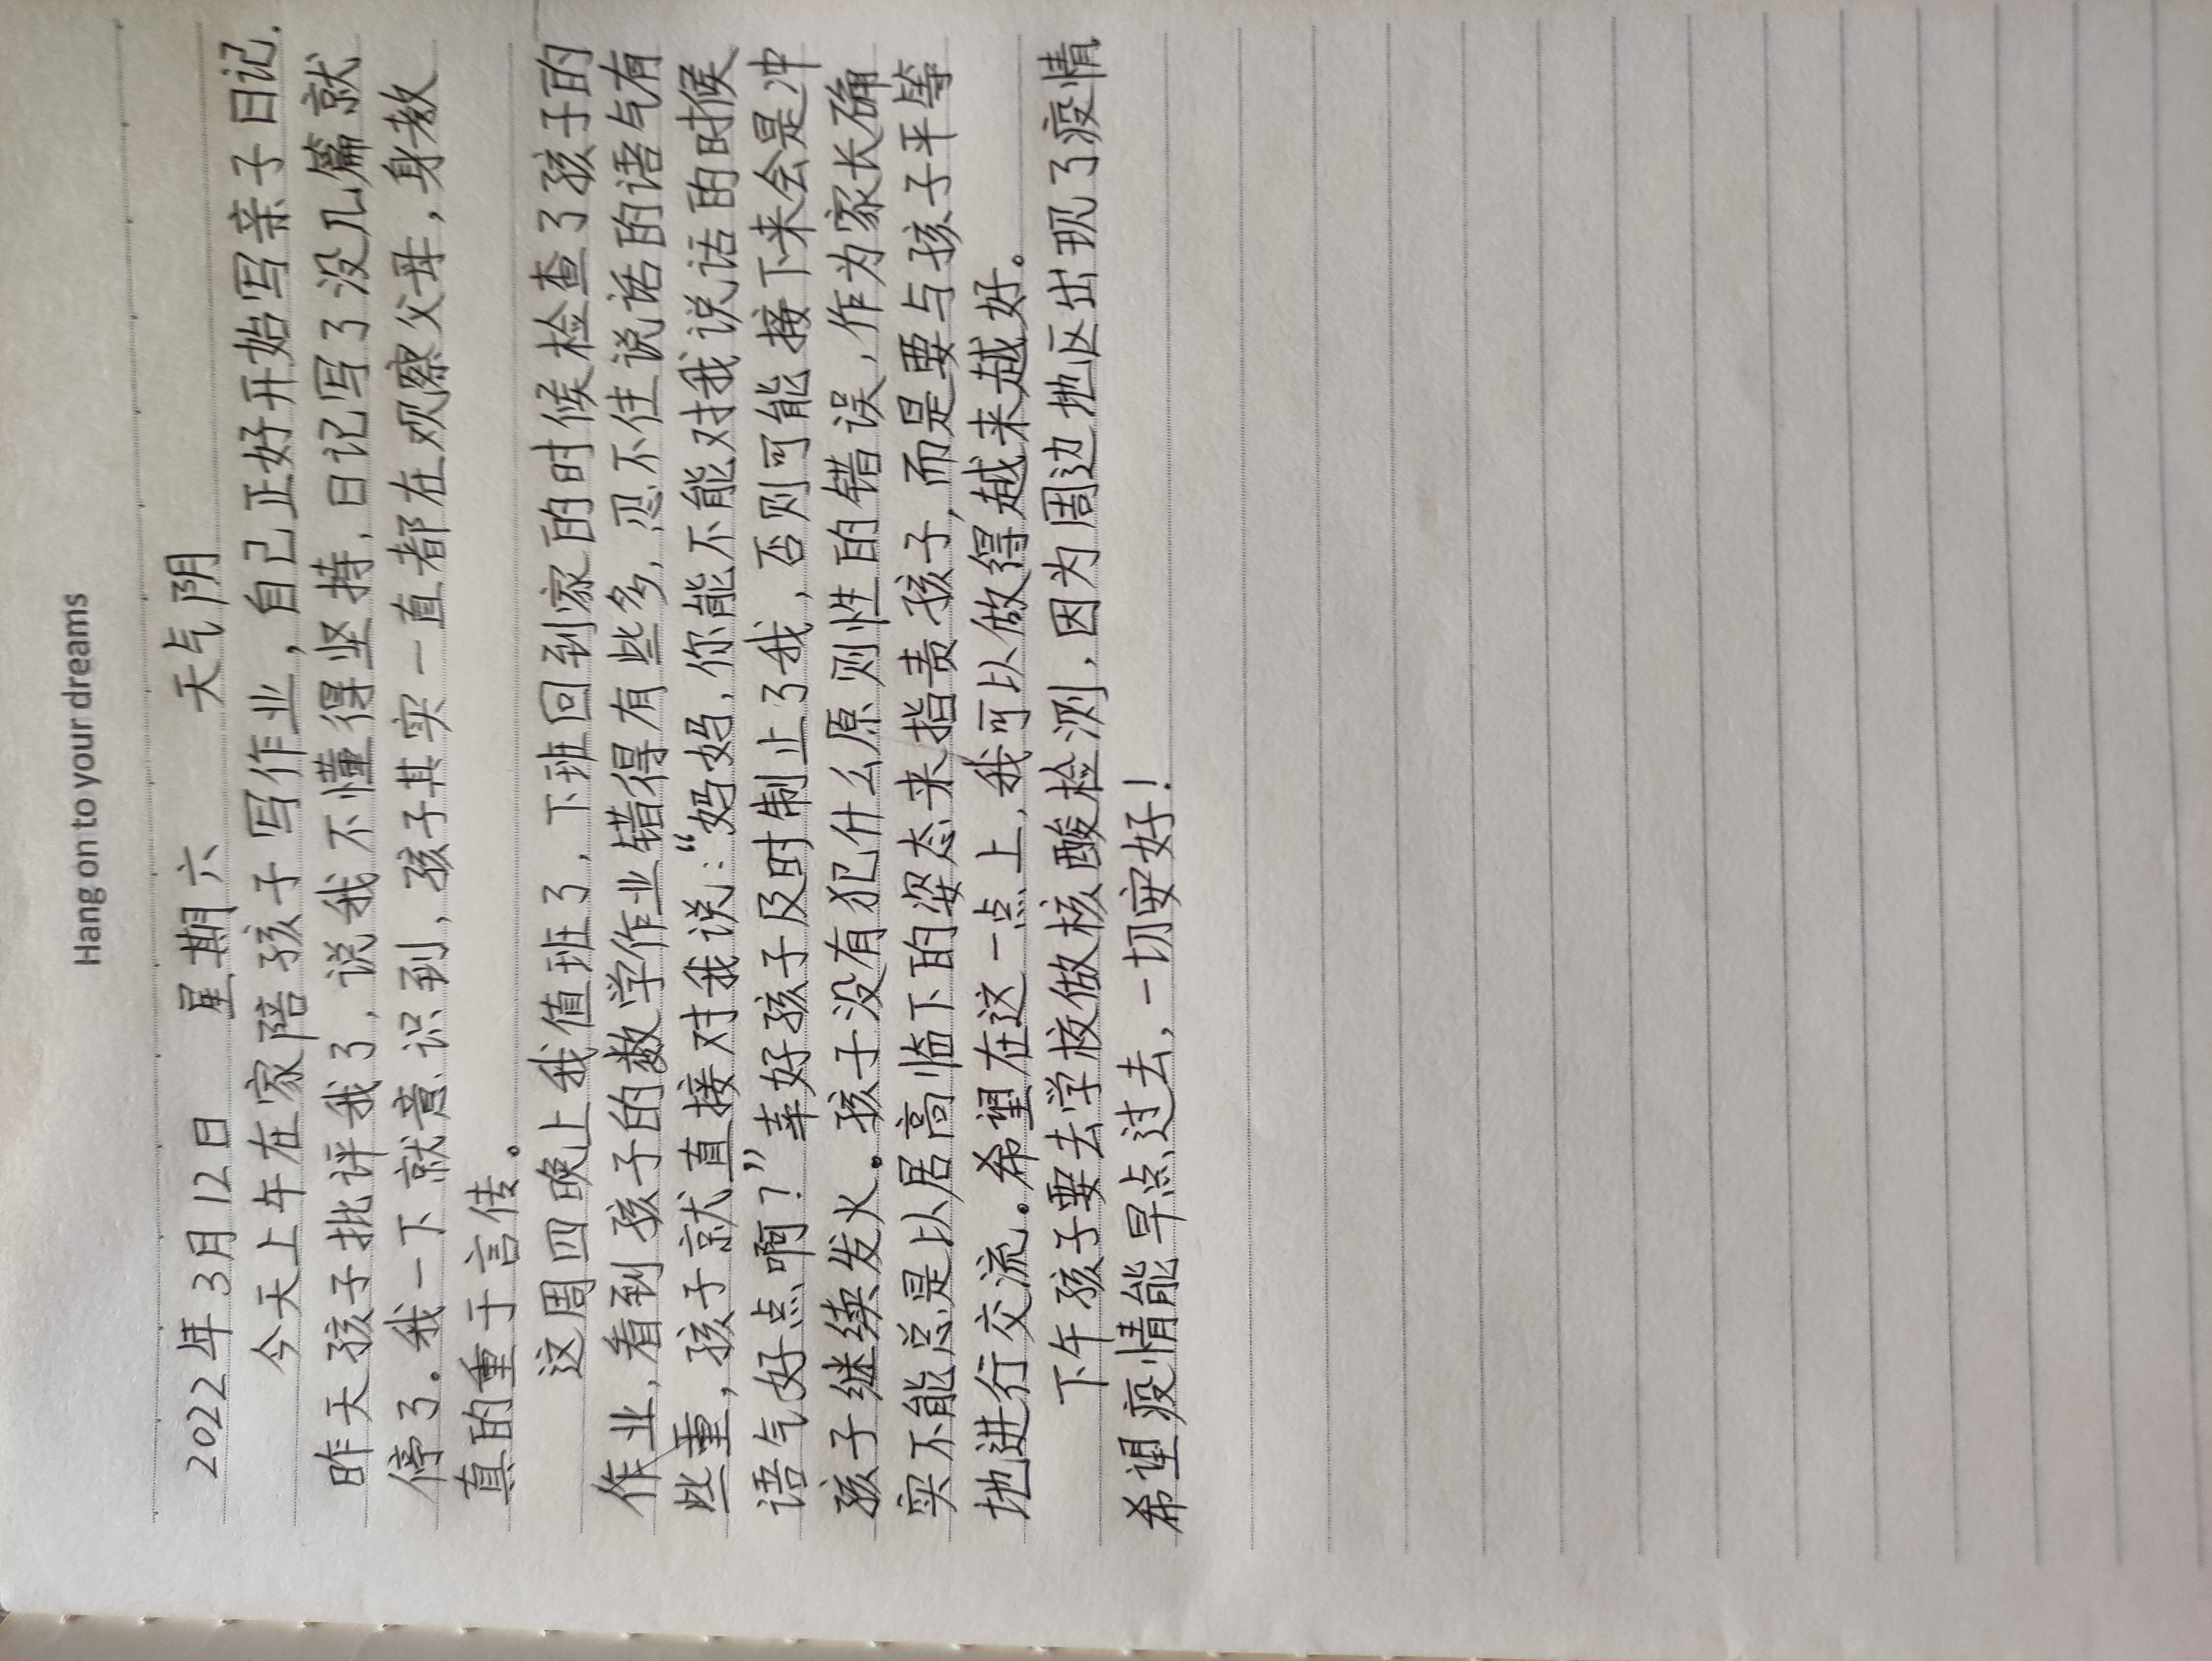 Hang on to your dreams
2022年3月12日 星期六 天气阴
今天上午在家陪孩子写作业，自己正好开始写亲子日记.
昨天孩子批评我了，说我不懂得坚持，日记写了没几篇就
停了。我一下就意识到，孩子其实一直都在观察父母，身教
真的重于言传。
这周四晚上我值班了，下班回到家的时候检查了孩子的
作业，看到孩子的数学作业错得有些多，忍不住说话的语气有
些重，孩子就直接对我说：“妈妈，你能不能对我说话的时候
语气好点啊？”幸好孩子及时制止了我，否则可能接下来会是冲
孩子继续发火。孩子没有犯什么原则性的错误，作为家长确
实不能总是以居高临下的姿态来指责孩子，而是要与孩子平等
地进行交流。希望在这一点上，我可以做得越来越好。
下午孩子要去学校做核酸检测，因为周边地区出现了疫情
希望疫情能早点过去，一切安好！